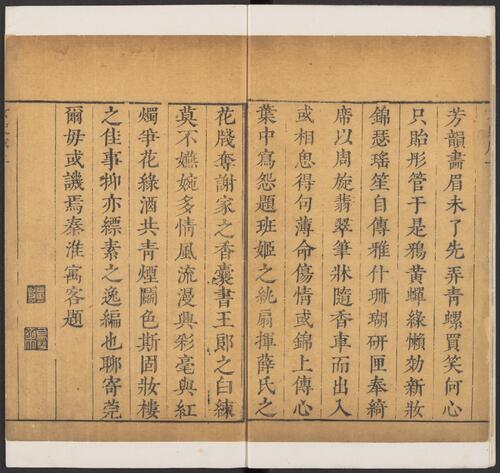 芳韻畵眉未了先弄青螺買笑何心
只貽彤管于是鴉黃蟬綠懶効新妝
錦瑟瑤笙自傳雅什珊瑚研匣奉綺
席以周旋翡翠筆牀隨香車而出入
或相思得句薄命傷情或錦上傳心
葉中寫怨題班姬之紈扇揮薛氏之
花牋奪謝家之香囊書王郞之白練
莫不嫵婉多情風流漫興彩毫與紅
燭爭花綠酒共青煙鬭色斯固妝樓
之佳事抑亦縹素之逸編也聊寄莞
爾毋或譏焉秦淮寓客題